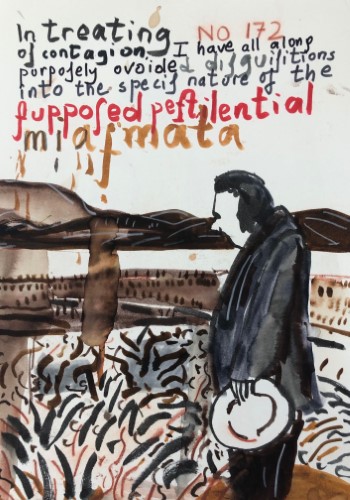 In treating NO 172
of contagion, I have all along
purpoſely avoided diſquiſitions
into the nature of the
ſuppoſed peſtilential
miaſmata